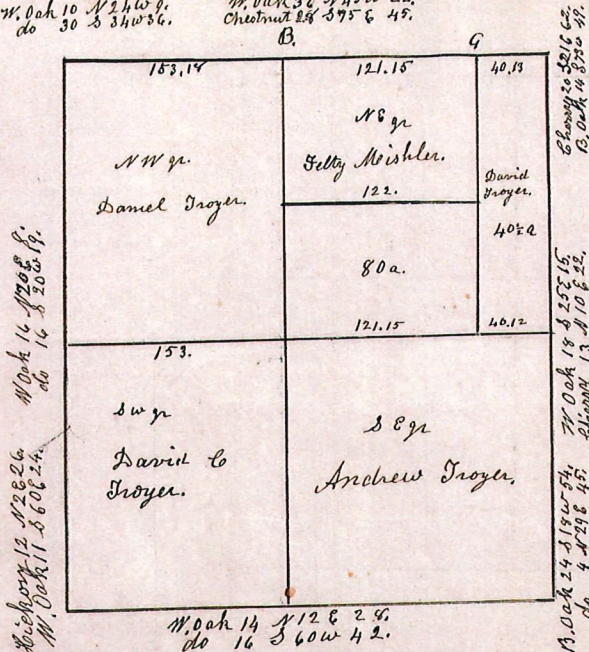 W. Oak 10 N24W9.
do 30 S 34W36.
Chestnut 28 S75 E 45.
B.
G
153.18
121.15
40.13
N W qr.
Daniel Troyer.
N E qr
Felty Mishler.
122.
David
Troyer.
40½a
80a.
121.15
40.12
153.
S W qr
David C
Troyer.
S E qr
Andrew Troyer.
W. Oak 14 N12 E 28.
do 16 S 60W 42.
W Oak 16 N20E 8.
do 16 S 20W 19.
Hickory 12 N2E26.
W. Oak 11 S60E24.
Cherry 20 S21E62.
B. Oak 14 S73W 49.
W Oak 18 S25E15.
Cherry 13 N10E22.
B. Oak 24 S18W54.
do 4 N29E 45.